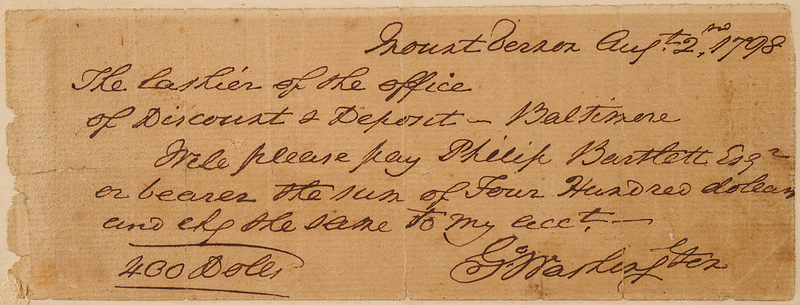 Mount Vernon Augt. 2nd, 1798
The Cashier of the office
of Discount & Deposit — Baltimore
Will please pay Philip Bartlett Esqr
or bearer the sum of Four Hundred dolears
and chg the same to my acct. —
400 Dolls
Go Washington